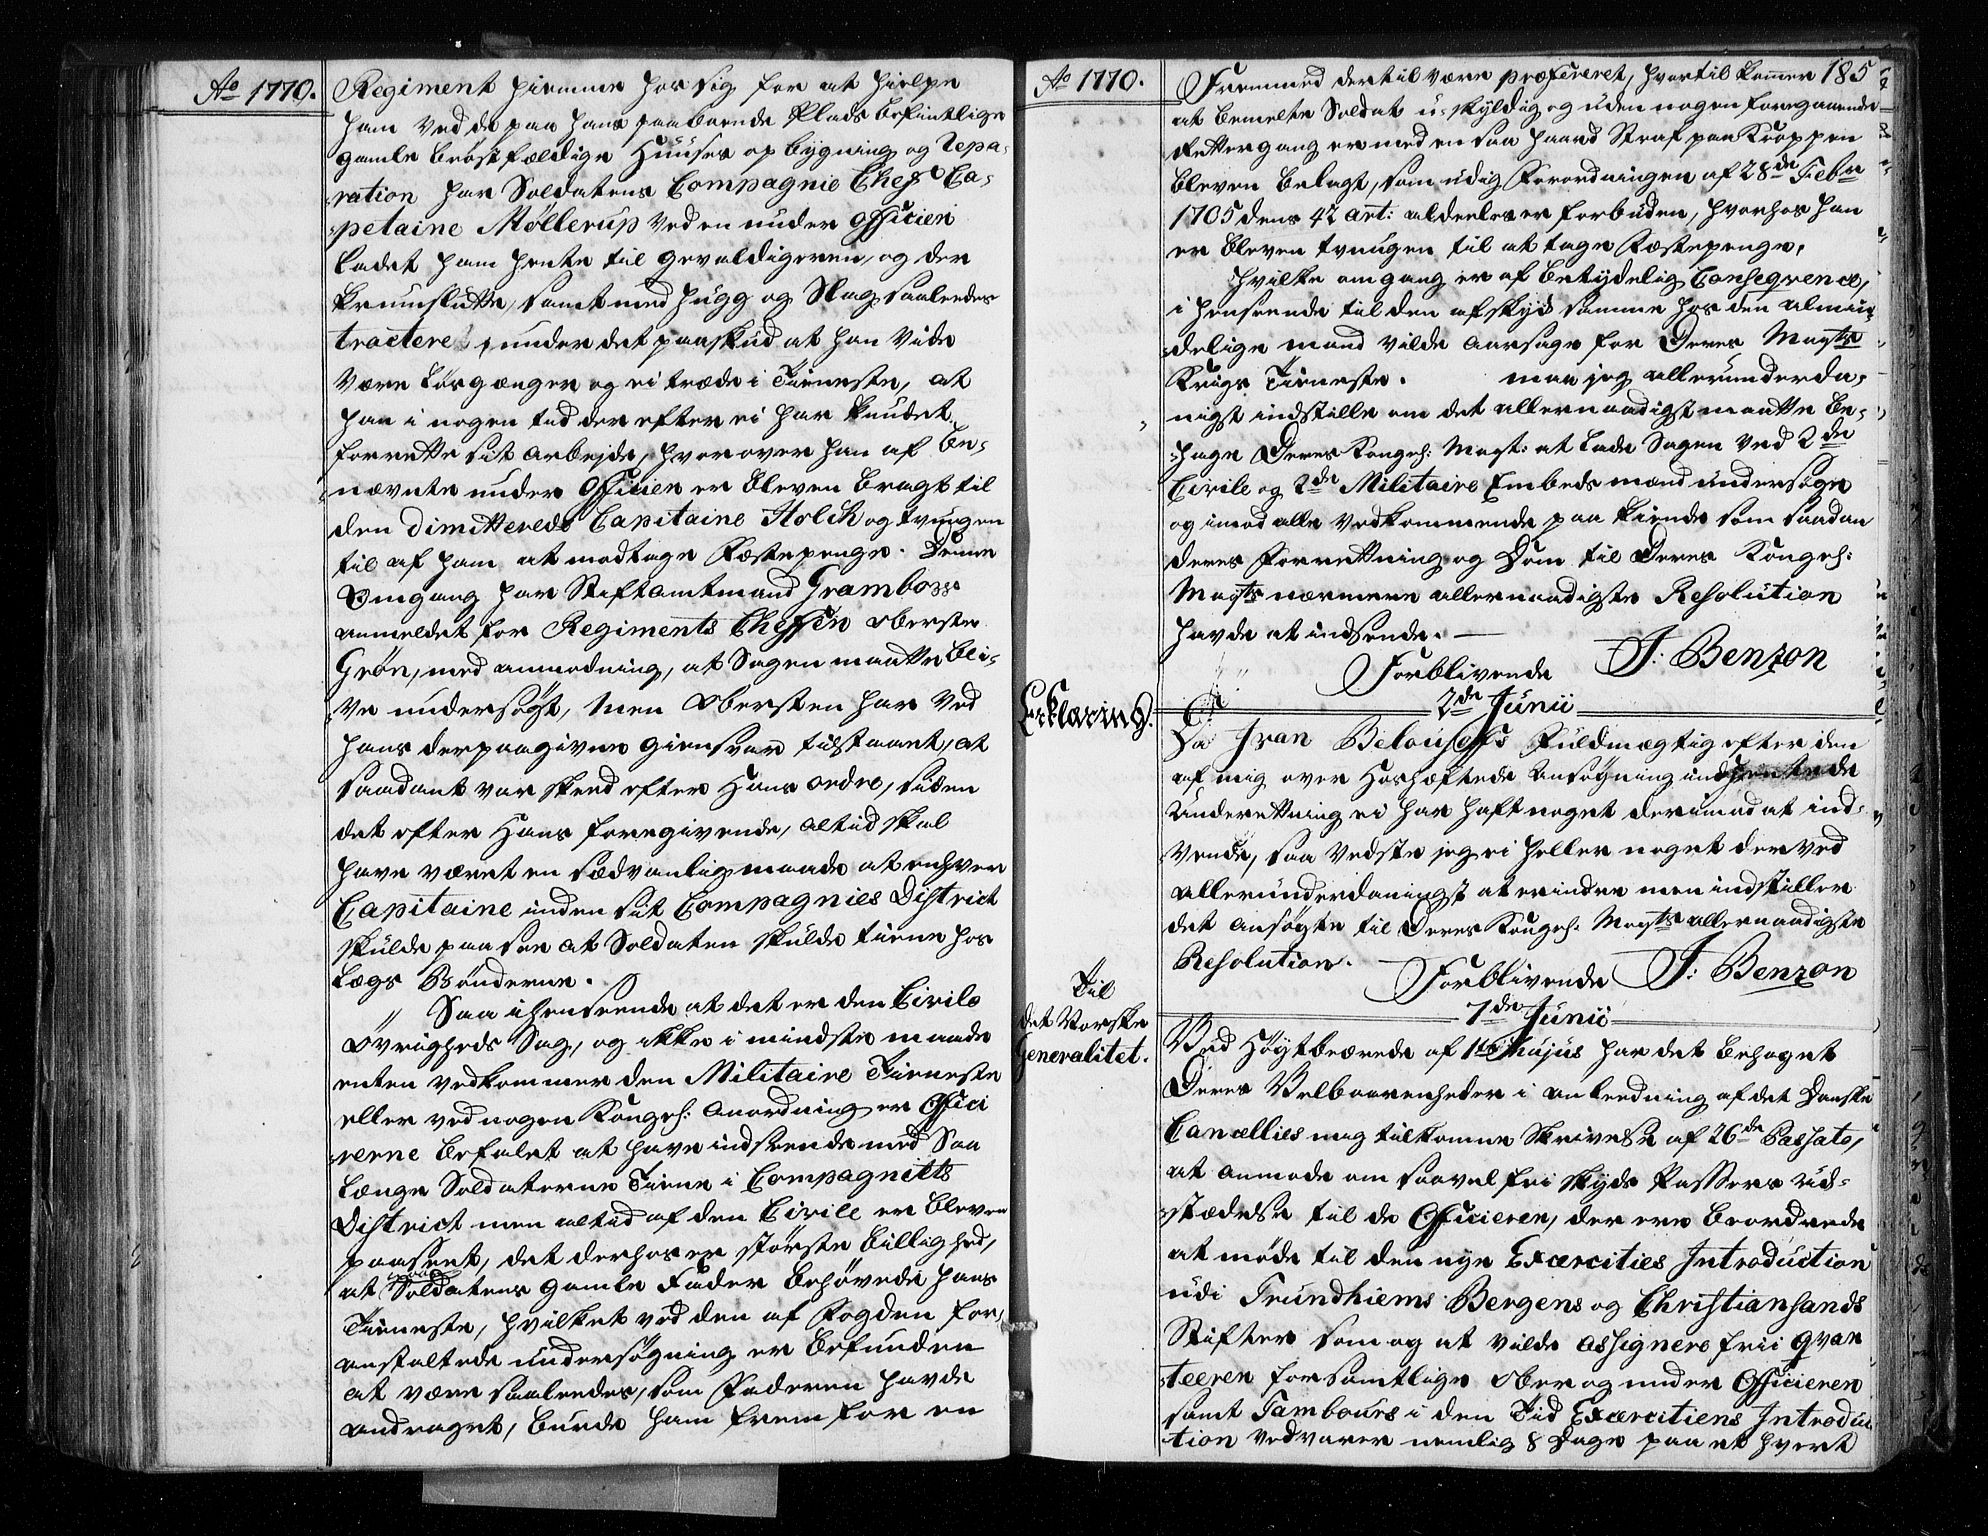 Ao 1770.
Regiment hiemme hos sig for at hielpe
ham ved de paa hans paaboende Plads befintlige
gamle brøstfældige Huuses opbygning og Repa-
ration har Soldatens Compagnie Chef Ca-
petaine Møllerup ved en under Officier
ladet ham hente til Gevaldigeren, og der
krumslutte, samt med hugg og Slag saaledes
tractere, under det paaskud at han vide
være løsgænger og ei træde i Tieneste, at
han i nogen tid der efter ei har kundet
forrette sit arbejde, hvorover han af be-
nævnte under Officier er bleven bragt til
den dimitterede Capitaine Holck og tvungen
til af ham at modtage Fæstepenge. Denne
Omgang har Stiftamtmand Grambow
anmeldet for Regiments Cheffen Oberste
Grøn, med anmodning, at Sagen maatte bli-
ve undersøgt, men Obersten har ved
hans derpaagivne giensvar tilstaaet, at
saadant var skeed efter Hans ordre, siden
det efter Hans foregivende, altid skal
have været en sædvanlig maade at enhver
Capitaine inden sit Compagnies District
skulde paasee at Soldaten skulde tiene hos
Lægs Bønderne.
Saa i henseende at det er den Civile
Øvrigheds Sag, og ikke i mindste maade
enten vedkommer den Militaire Tieneste
eller ved nogen Kongel: Anordning er Offici
rerne befalet at have indseende med Saa
længe Soldaterne tiene i Compagniets
District men altid af den Civile er bleven
paaseet, det derhos er største billighed,
at Soldatens gamle Fader behøvede hans
Tieneste, hvilket ved den af Fogden for-
anstaltede undersøgning er befunden
at være saaledes, som Faderen havde
andraget, burde ham frem for en
Ao 1770.
185
Fremmed dertil være præfereret, hvortil kommer
at bemelte Soldat u-skyldig og uden nogen foregaaende
Rettergang er med en saa haard Straf paa Kroppen
bleven belagt, som udi Forordningen af 28de Febr
1705 dens 42 art: aldeeles er forbuden, hvorhos han
er bleven tvungen til at tage Fæstepenge,
Hvilke omgang er af betydelig Conseqvence,
i henseende til den afskye samme hos den almin-
delige mand vilde aarsage for Deres Mayts
Krigs Tieneste. maa jeg allerunderda-
nigst indstille om det allernaadigst maatte be-
hage Deres Kongel: Mayt: at lade Sagen ved 2de
Civile og 2de Militaire Embedsmænd undersøge
og imod alle vedkommende paa kiende som saadan
deres Forrettning og Dom til Deres Kongel:
Mayts nærmere allernaadigste Resolution
havde at indsende. —
Forblivende J: Benzon
2de Junii
Erklæring.
Da Ivan Belouseffs Fuldmægtig efter den
af mig over Hoshæftede Ansøgning indhentede
Underrettning ei har haft noget derimod at ind-
vende, saa vedste jeg ei heller noget derved
allerunderdanigst at erindre men indstiller
det ansøgte til Deres Kongel: Mayts allernaadigste
Resolution.
Forblivende J: Benzon
7de Junii
Til
det Norske
Generalitet.
Ved Høystbeærede af 1ste hujus har det behaget
Deres Velbaarenheder i anleedning af det Danske
Cancellies mig tilkomne Skrivelse af 26de Passato,
at anmode om saavel fri skyds Passers ud-
stædelse til de Officierer, der ere beordrede
at møde til den nye Exercities Introduction
udi Trundhiems Bergens og Christiansands
Stifter som og at vilde assignere frii qvar
teerer for samtlige Ober og under Officierer
samt Tambours i den Tid Exercitiens Introduc
tion vedvarer nemlig 8 Dage paa et hvert